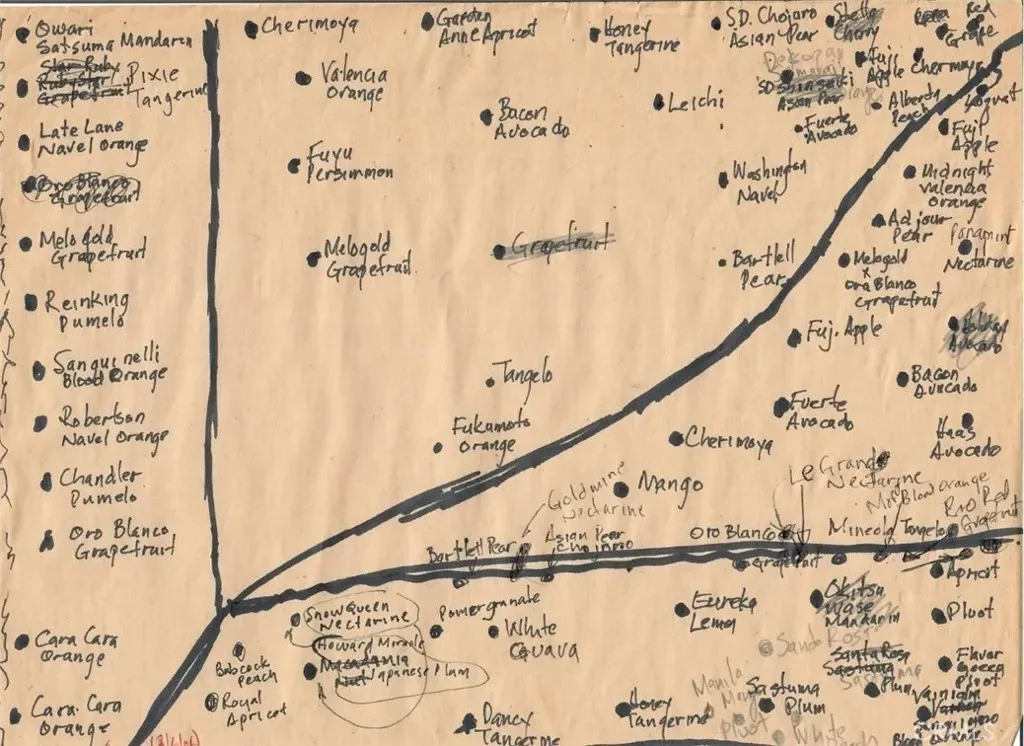 Owari
Satsuma Mandarin
Star Ruby
Ruby Star
Grapefruit
Pixie
Tangerine
Late Lane
Navel Orange
Oro Blanco
Grapefruit
Melo Gold
Grapefruit
Reinking
Pumelo
Sanguinelli
Blood Orange
Robertson
Navel Orange
Chandler
Pumelo
Oro Blanco
Grapefruit
Cara Cara
Orange
Cara Cara
Orange
Cherimoya
Garden
Anne Apricot
Honey
Tangerine
S.D. Chojuro
Asian Pear
Stella
Cherry
Red
Grape
Valencia
Orange
Bacon
Avocado
Leichi
SD Shinseiki
Asian Pear
Fuji
Apple
Cherimoya
Alberta
Peach
Loquat
Fuerte
Avocado
Fuji
Apple
Fuyu
Persimmon
Washington
Navel
Midnight
Valencia
Orange
Melogold
Grapefruit
Grapefruit
Bartlell
Pear
Adjour
Pear
Panamint
Nectarine
Melogold
x
Oro Blanco
Grapefruit
Fuj. Apple
Avocado
Tangelo
Bacon
Avocado
Fuerte
Avocado
Fukamoto
Orange
Cherimoya
Haas
Avocado
Mango
Goldmine
Nectarine
Le Grande
Nectarine
Moro Blood Orange
Rio Red
Grapefruit
Bartlett Pear
Asian Pear
Chojuro
Oro Blanco
Grapefruit
Mineola Tangelo
Apricot
Snow Queen
Nectarine
Pomergranate
White
Guava
Eureka
Lemon
Okitsu
Wase
Mandarin
Pluot
Babcock
Peach
Howard Miracle
Macadamia
Nut
Japanese Plum
Santa Rosa
Santa Rosa
Satsuma
Plum
Flavor
Pluot
Royal
Apricot
Dancy
Tangerine
Honey
Tangerine
Manila
Mango
Sastuma
Plum
Pluot
White
Orange